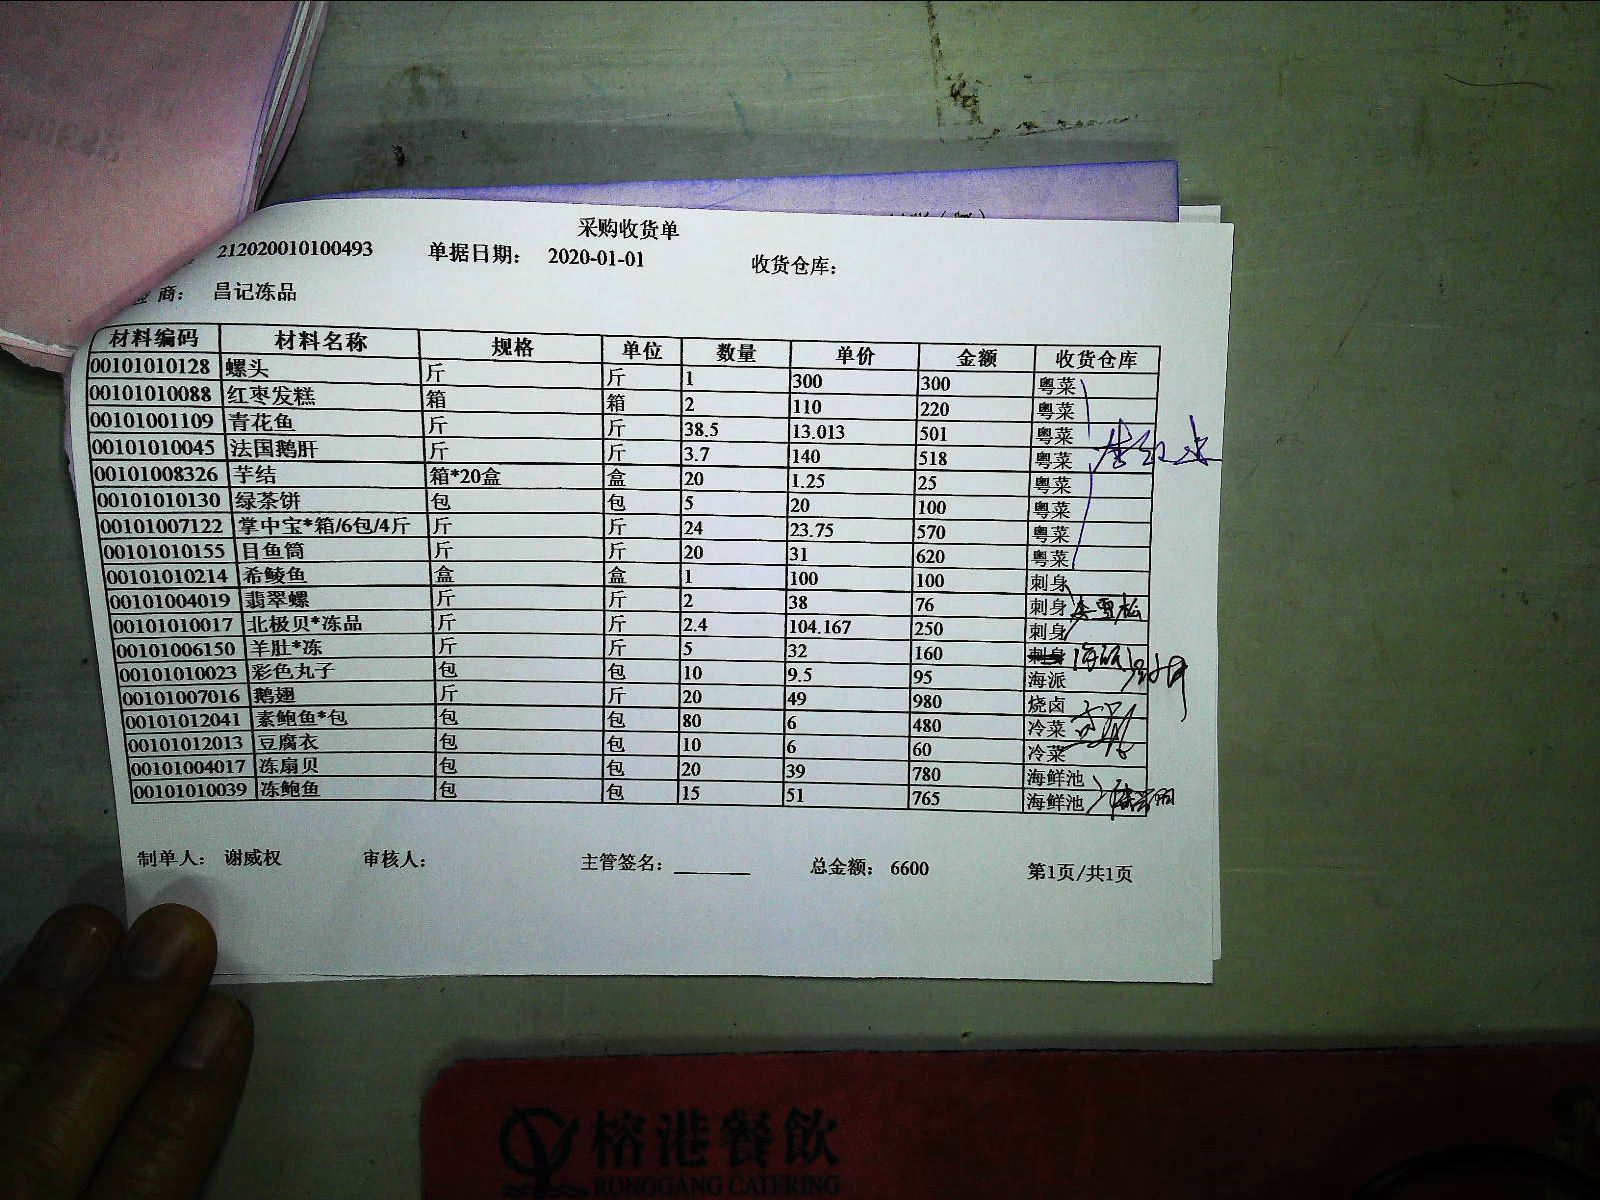 采购收货单
212020010100493 单据日期: 2020-01-01 收货仓库:
商: 昌记冻品
材料编码 材料名称 规格 单位 数量 单价 金额 收货仓库
00101010128 螺头 斤 斤 1 300 300 粤菜
00101010088 红枣发糕 箱 箱 2 110 220 粤菜
00101001109 青花鱼 斤 斤 38.5 13.013 501 粤菜
00101010045 法国鹅肝 斤 斤 3.7 140 518 粤菜
00101008326 芋结 箱*20盒 盒 20 1.25 25 粤菜
00101010130 绿茶饼 包 包 5 20 100 粤菜
00101007122 掌中宝*箱/6包/4斤 斤 斤 24 23.75 570 粤菜
00101010155 目鱼筒 斤 斤 20 31 620 粤菜
00101010214 希鲮鱼 盒 盒 1 100 100 刺身
00101004019 翡翠螺 斤 斤 2 38 76 刺身
00101010017 北极贝*冻品 斤 斤 2.4 104.167 250 刺身
00101006150 羊肚*冻 斤 斤 5 32 160 刺身
00101010023 彩色丸子 包 包 10 9.5 95 海派
00101007016 鹅翅 斤 斤 20 49 980 烧卤
00101012041 素鲍鱼*包 包 包 80 6 480 冷菜
00101012013 豆腐衣 包 包 10 6 60 冷菜
00101004017 冻扇贝 包 包 20 39 780 海鲜池
00101010039 冻鲍鱼 包 包 15 51 765 海鲜池
制单人: 谢威权 审核人: 主管签名: 总金额: 6600 第1页/共1页
榕港餐飲
RONGGANG CATERING